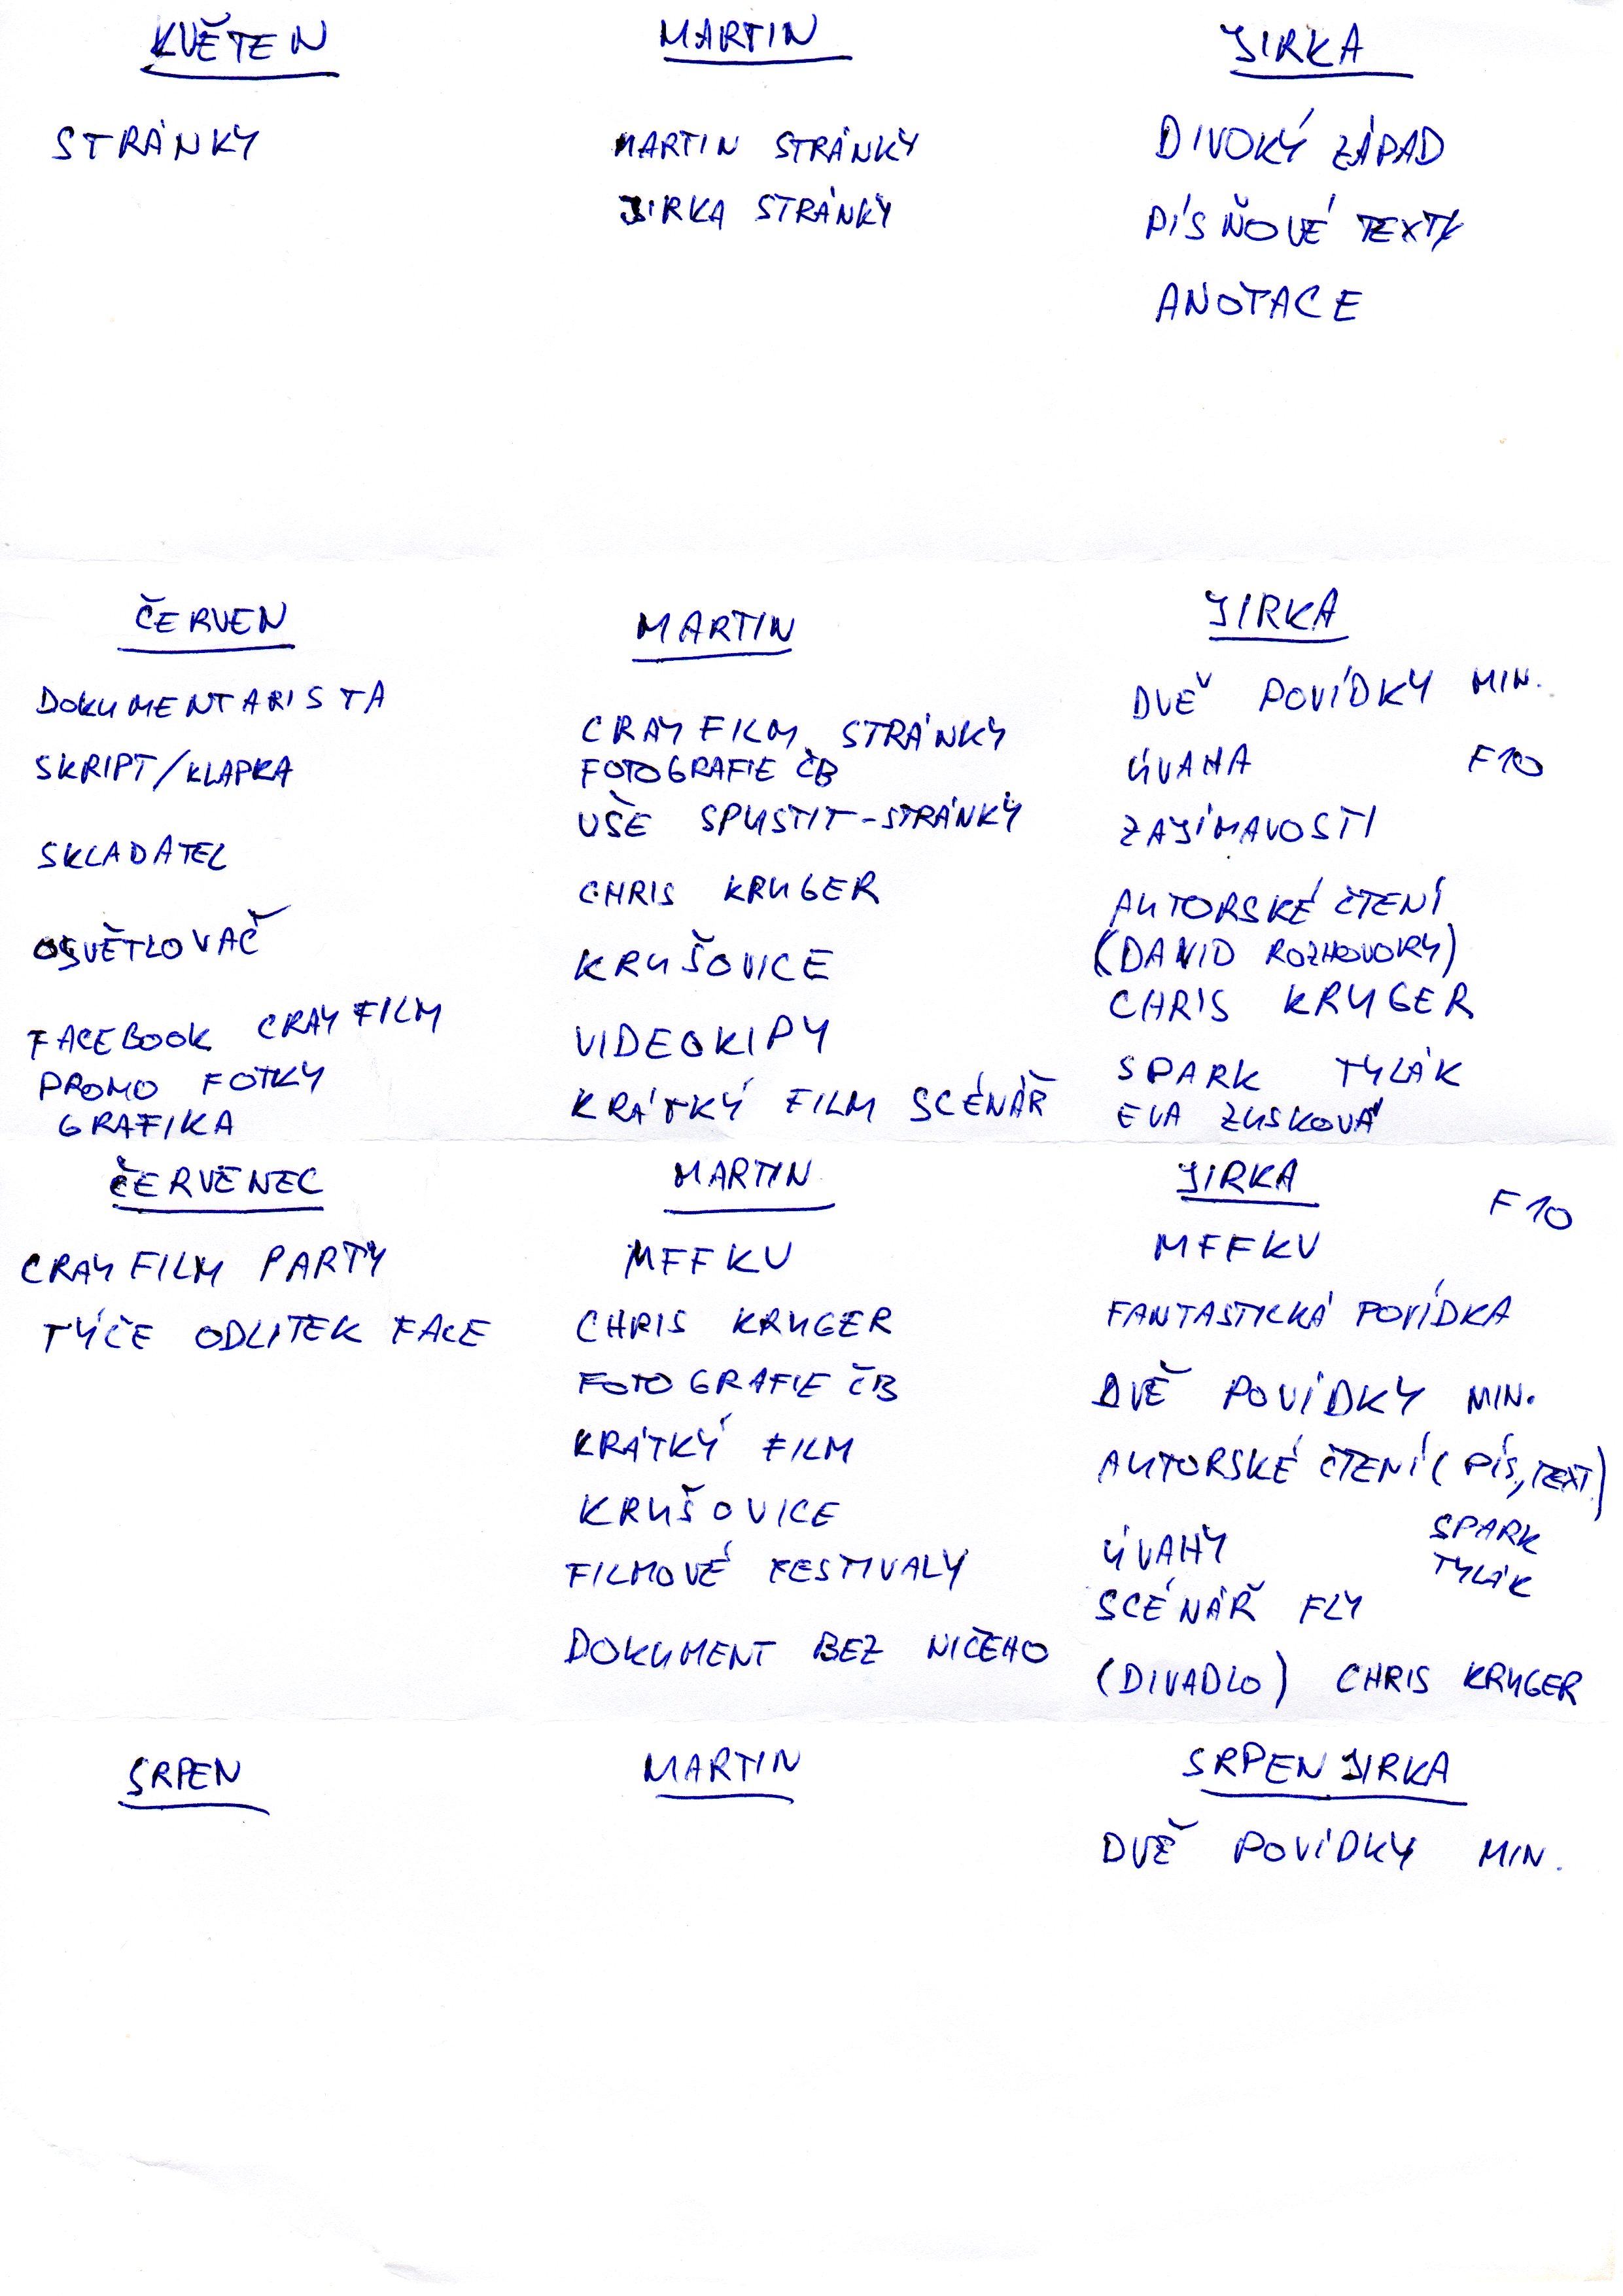 KVĚTEN
STRÁNKY
MARTIN
MARTIN STRÁNKY
JIRKA STRÁNKY
JIRKA
DIVOKÝ ZÁPAD
PÍSŇOVÉ TEXTY
ANOTACE
ČERVEN
DOKUMENTARISTA
SKRIPT/KLAPKA
SKLADATEL
OSVĚTLOVAČ
FACEBOOK CRAY FILM
PROMO FOTKY
GRAFIKA
MARTIN
CRAY FILM STRÁNKY
FOTOGRAFIE ČB
VŠE SPUSTIT-STRÁNKY
CHRIS KRUGER
KRUŠOVICE
VIDEOKIPY
KRÁTKÝ FILM SCÉNÁŘ
JIRKA
DVĚ POVÍDKY MIN.
ÚVAHA F10
ZAJÍMAVOSTI
AUTORSKÉ ČTENÍ
(DAVID ROZHOVORY)
CHRIS KRUGER
SPARK TYLÁK
EVA ZUSKOVÁ
ČERVENEC
CRAY FILM PARTY
TÝČE ODLITEK FACE
MARTIN
MFFKV
CHRIS KRUGER
FOTOGRAFIE ČB
KRÁTKÝ FILM
KRUŠOVICE
FILMOVÉ FESTIVALY
DOKUMENT BEZ NIČEHO
JIRKA F10
MFFKV
FANTASTICKÁ POVÍDKA
DVĚ POVÍDKY MIN.
AUTORSKÉ ČTENÍ (PÍS, TEXT)
ÚVAHY SPARK TYLÁK
SCÉNÁŘ FLY
(DIVADLO) CHRIS KRUGER
SRPEN
MARTIN
SRPEN JIRKA
DVĚ POVÍDKY MIN.